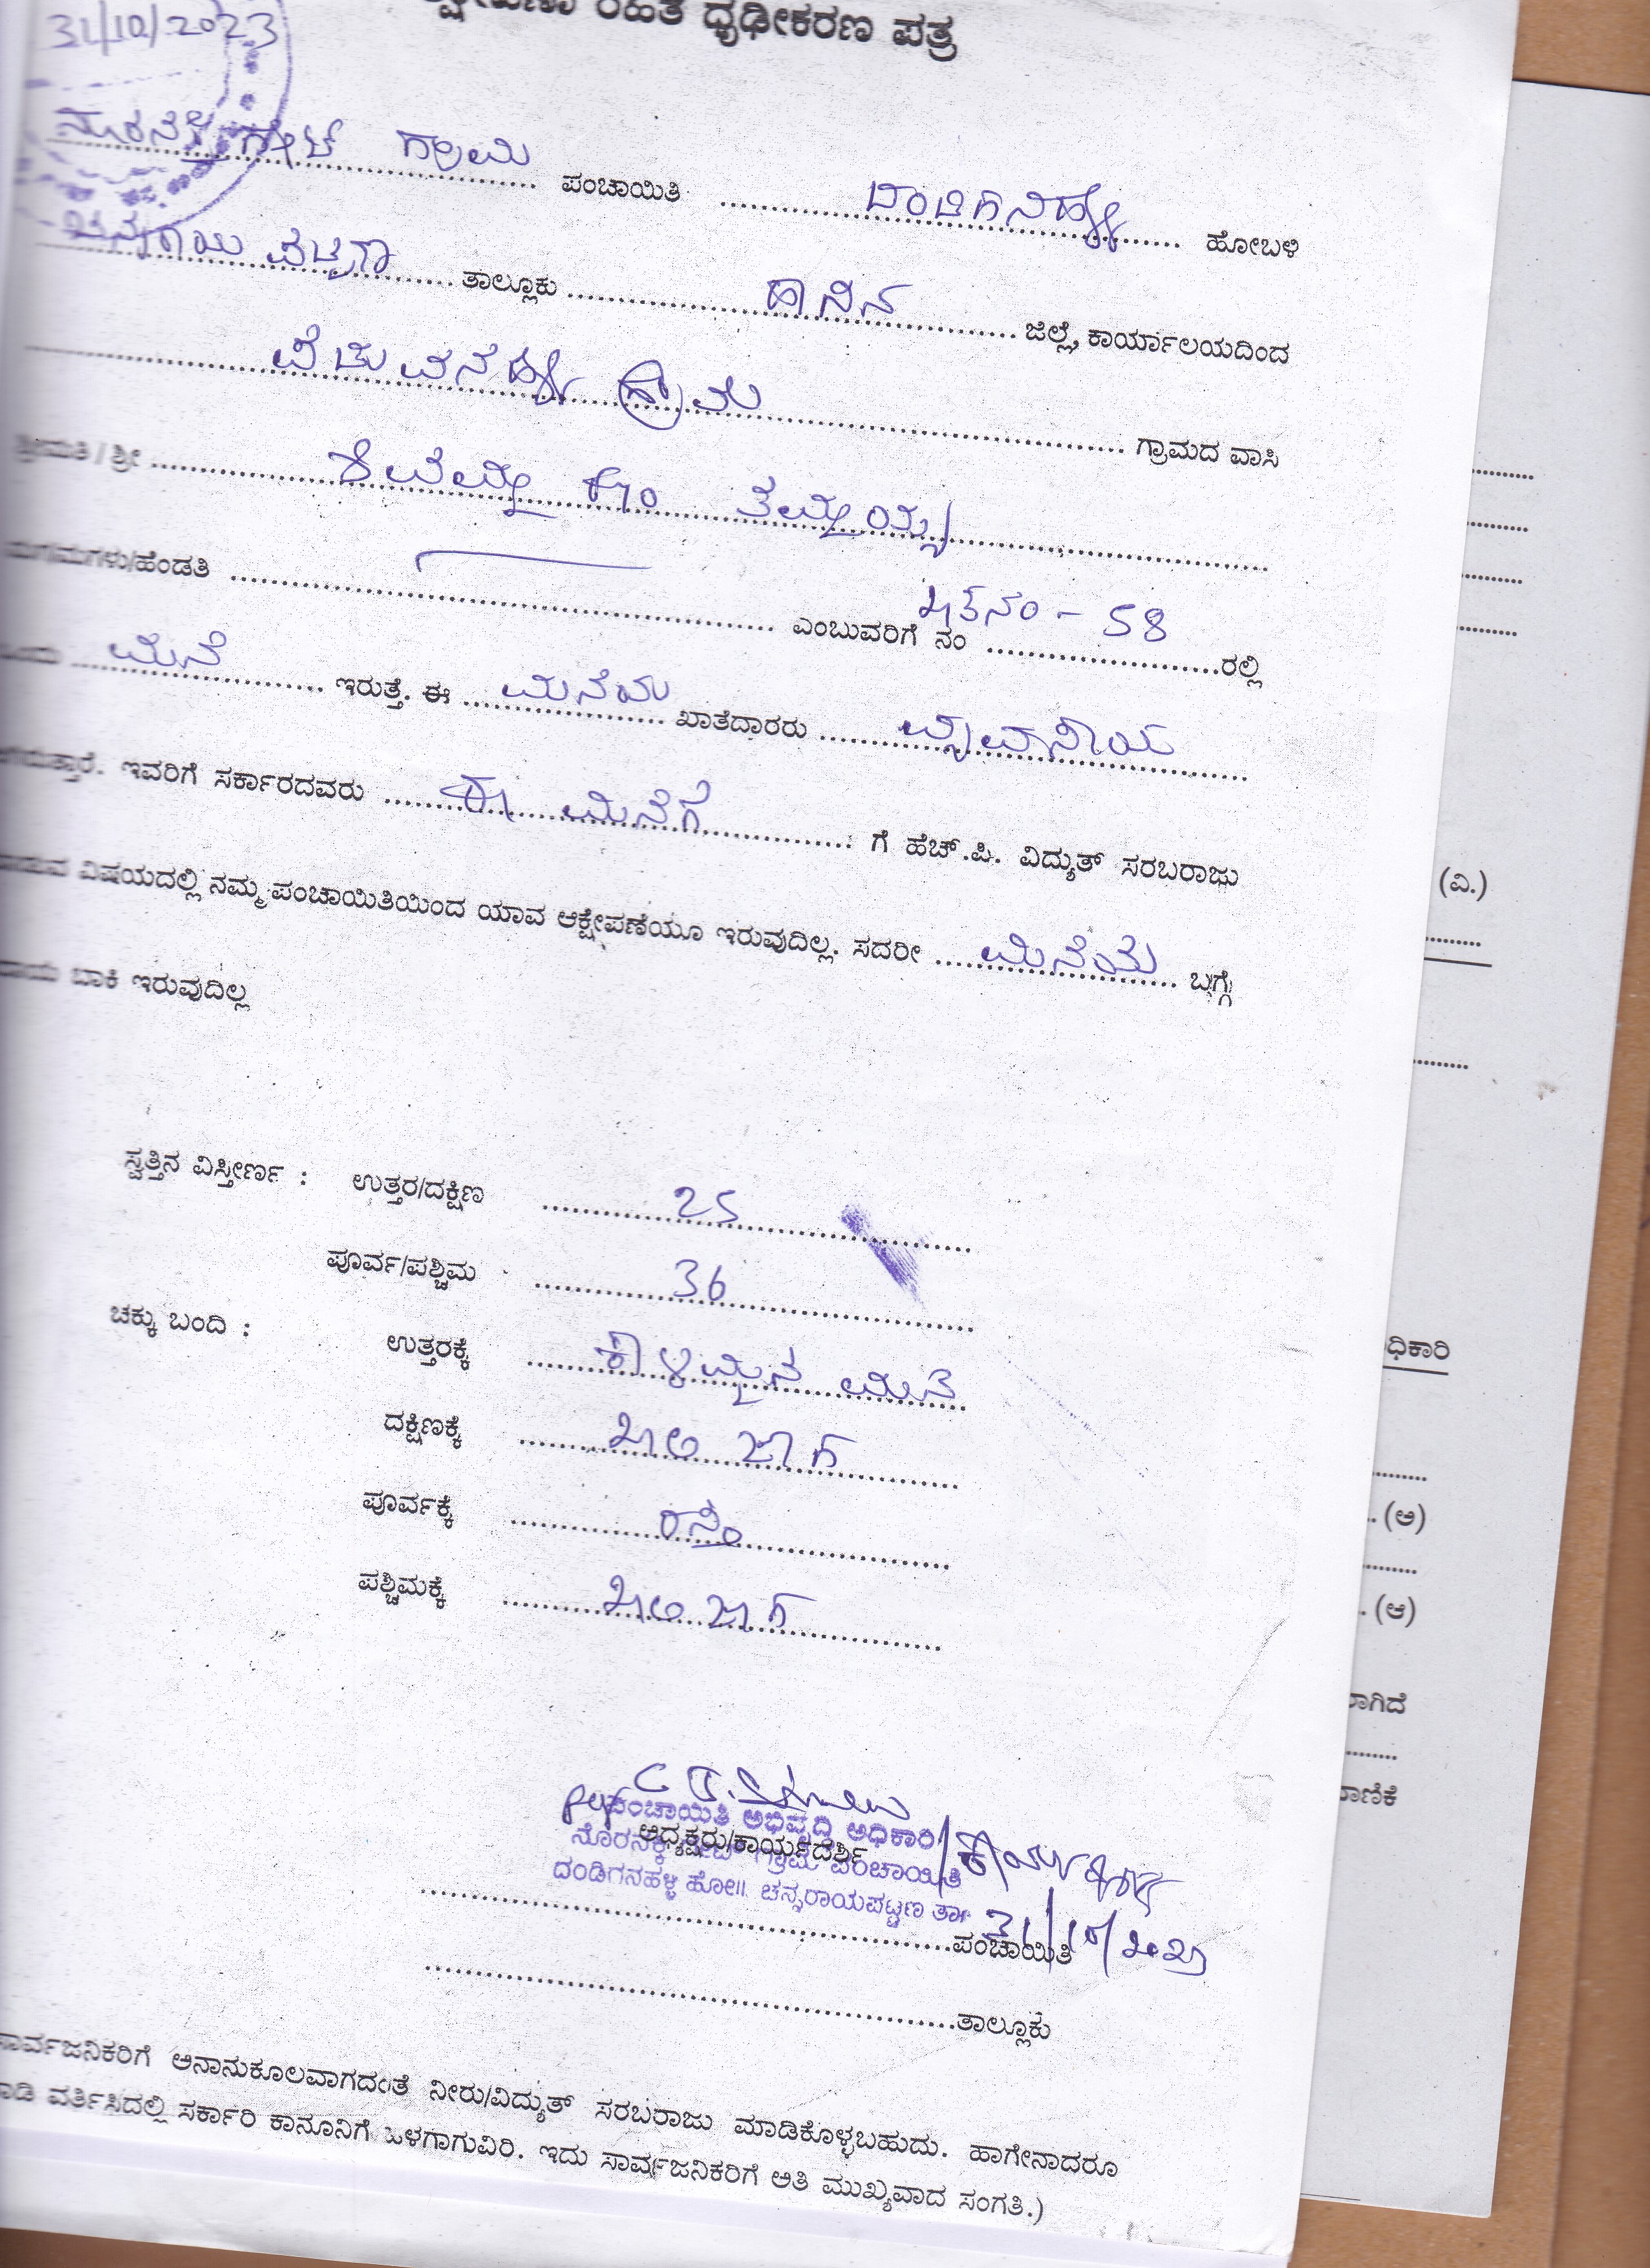 ರಹಿತ ಧೃಢೀಕರಣ ಪತ್ರ
31/10/2023
ಗೇಟ್ ಗ್ರಾಮ ಪಂಚಾಯಿತಿ ದಂಡಿಗನಹಳ್ಳಿ ಹೋಬಳಿ
ತಾಲ್ಲೂಕು ಹಾಸನ ಜಿಲ್ಲೆ, ಕಾರ್ಯಾಲಯದಿಂದ
ಗ್ರಾಮ ಗ್ರಾಮದ ವಾಸಿ
ಶ್ರೀಮತಿ / ಶ್ರೀ ಕೋಂ ತಮ್ಮಯ್ಯ
ಮಗ/ಮಗಳು/ಹೆಂಡತಿ ಎಂಬುವರಿಗೆ ನಂ ಖಾತೆನಂ - 58 ರಲ್ಲಿ
ಮನೆ ಇರುತ್ತೆ. ಈ ಮನೆಯ ಖಾತೆದಾರರು
ಇವರಿಗೆ ಸರ್ಕಾರದವರು ಈ ಮನೆಗೆ ಗೆ ಹೆಚ್.ಪಿ. ವಿದ್ಯುತ್ ಸರಬರಾಜು
ವಿಷಯದಲ್ಲಿ ನಮ್ಮ ಪಂಚಾಯಿತಿಯಿಂದ ಯಾವ ಆಕ್ಷೇಪಣೆಯೂ ಇರುವುದಿಲ್ಲ. ಸದರೀ ಮನೆಯ ಬಗ್ಗೆ
ಬಾಕಿ ಇರುವುದಿಲ್ಲ
ಸ್ವತ್ತಿನ ವಿಸ್ತೀರ್ಣ : ಉತ್ತರ/ದಕ್ಷಿಣ 25
ಪೂರ್ವ/ಪಶ್ಚಿಮ 36
ಚಕ್ಕು ಬಂದಿ : ಉತ್ತರಕ್ಕೆ ಕಾಳಮ್ಮನ ಮನೆ
ದಕ್ಷಿಣಕ್ಕೆ ಖಾಲಿ ಜಾಗ
ಪೂರ್ವಕ್ಕೆ ರಸ್ತೆ
ಪಶ್ಚಿಮಕ್ಕೆ ಖಾಲಿ ಜಾಗ
ಪಂಚಾಯಿತಿ ಅಭಿವೃದ್ಧಿ ಅಧಿಕಾರಿ
ಅಧ್ಯಕ್ಷರು/ಕಾರ್ಯದರ್ಶಿ
ಗ್ರಾಮ ಪಂಚಾಯಿತಿ
ದಂಡಿಗನಹಳ್ಳಿ ಹೋ॥ ಚನ್ನರಾಯಪಟ್ಟಣ ತಾ॥
31/10/2023
ಪಂಚಾಯಿತಿ
ತಾಲ್ಲೂಕು
ಸಾರ್ವಜನಿಕರಿಗೆ ಅನಾನುಕೂಲವಾಗದಂತೆ ನೀರು/ವಿದ್ಯುತ್ ಸರಬರಾಜು ಮಾಡಿಕೊಳ್ಳಬಹುದು. ಹಾಗೇನಾದರೂ
ವರ್ತಿಸಿದಲ್ಲಿ ಸರ್ಕಾರಿ ಕಾನೂನಿಗೆ ಒಳಗಾಗುವಿರಿ. ಇದು ಸಾರ್ವಜನಿಕರಿಗೆ ಅತಿ ಮುಖ್ಯವಾದ ಸಂಗತಿ.)
(ವಿ.)
(ಅ)
(ಆ)